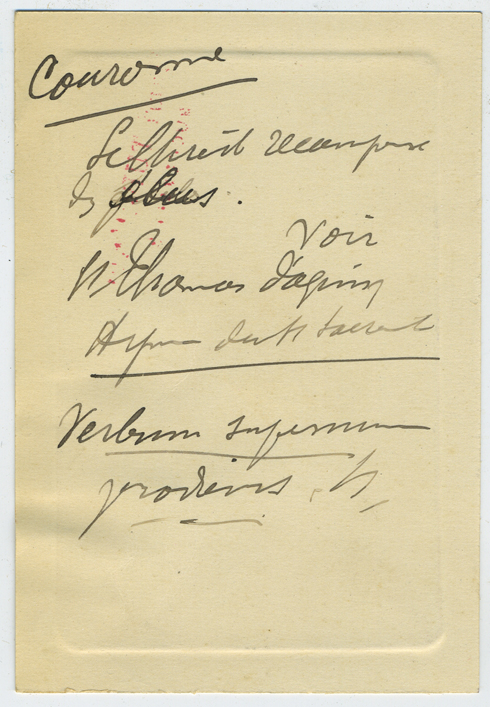 Couronne
Le Christ récompense
des élus.
Voir
St Thomas d'Aquin
Hymne du St Sacrement
Verbum supernum
prodiens.